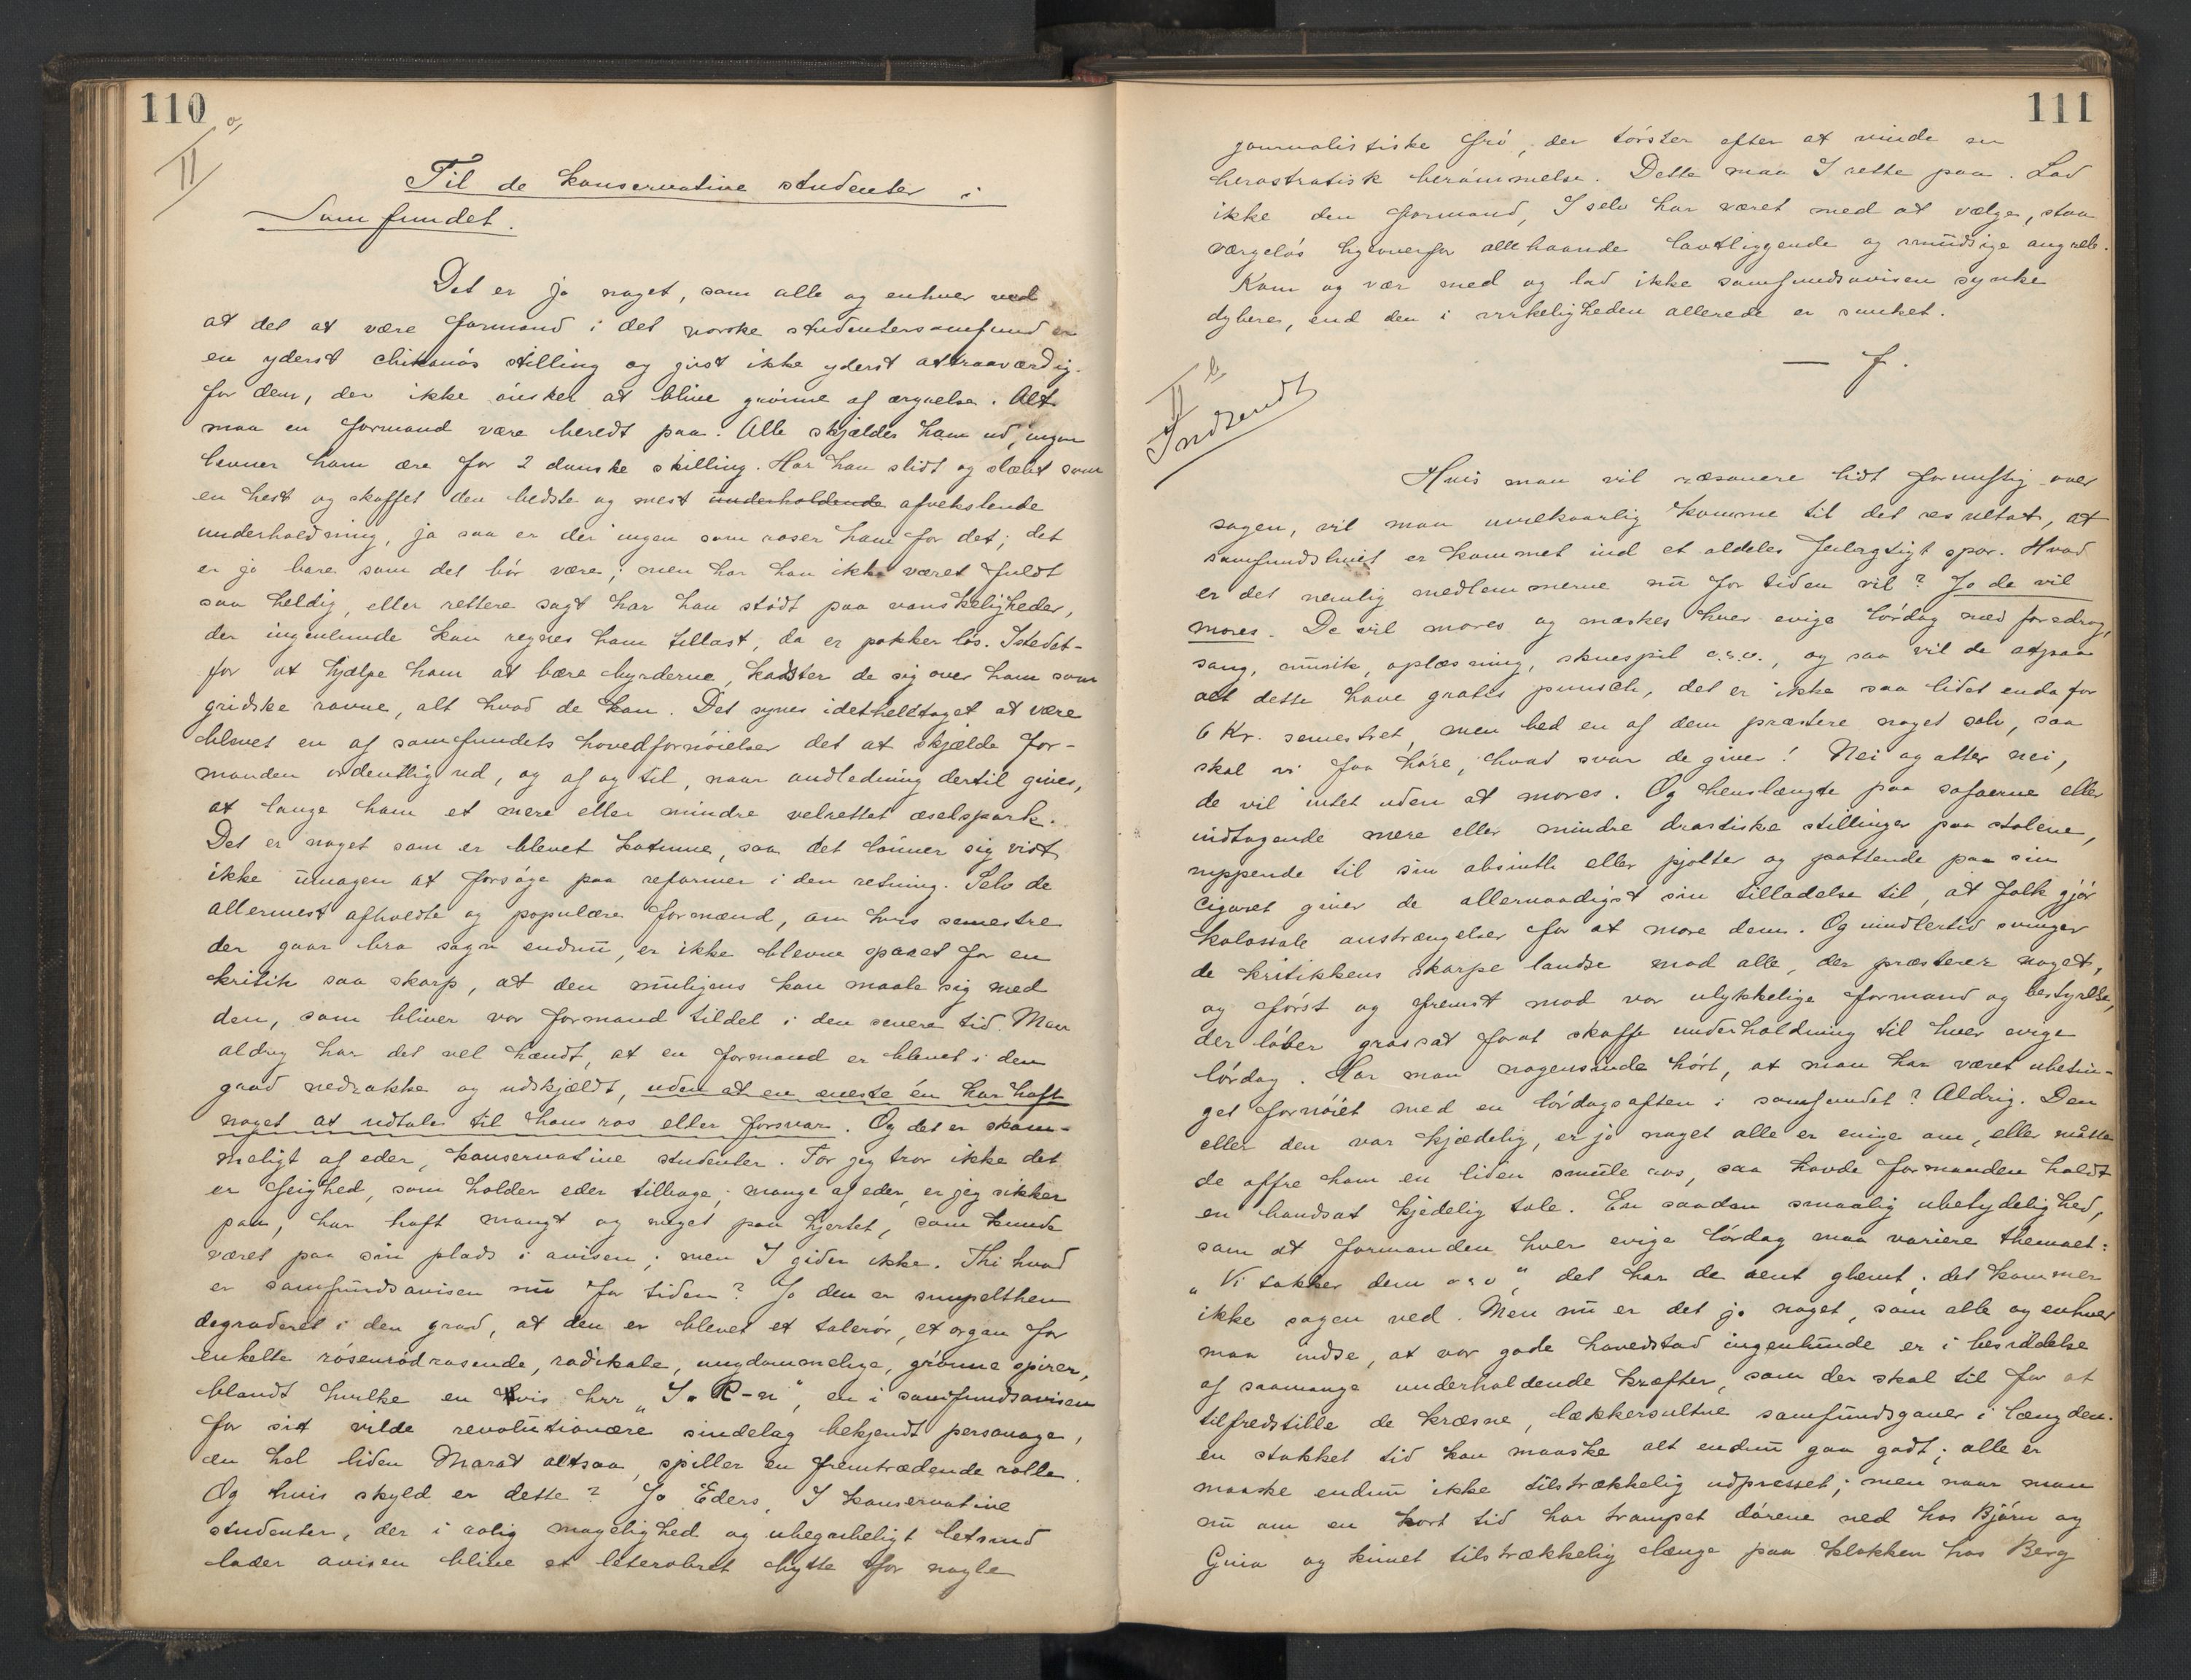 110
II a
Til de konservative studenter i
Samfundet.
Det er jo noget, som alle og enhver ved
at det at være formand i det norske studentersamfund er
en yderst chikanøs stilling og just ikke yderst attraaværdig
for dem, der ikke ønsker at blive grønne af ærgrelse. Alt
maa en formand være beredt paa. Alle skjælder ham ud, ingen
levner ham ære for 2 danske skilling. Har han slidt og slæbt som
en hest og skaffet den bedste og mest underholdende afvekslende
underholdning, ja saa er der ingen som roser ham for det; det
er jo bare som det bør være; men har han ikke været fuldt
saa heldig, eller rettere sagt har han stødt paa vanskeligheder,
der ingenlunde kan regnes ham tillast, da er pokker løs. Istedet-
for at hjælpe ham at bære byrderne, kaster de sig over ham som
gridske ravne, alt hvad de kan. Det synes idetheletaget at være
blevet en af samfundets hovedfornøielser det at skjælde for-
manden ordentlig ud, og af og til, naar andledning dertil gives,
at lange ham et mere eller mindre velrettet æselspark.
Det er noget som er blevet kotume, saa det lønner sig vist
ikke umagen at forsøge paa reformer i den retning. Selv de
allermest afholdte og populære formænd, om hvis semestre
der gaar bra sagn endnu, er ikke blevne sparet for en
kritik saa skarp, at den muligens kan maale sig med
den, som bliver vor formand tildel i den senere tid. Men
aldrig har det vel hændt, at en formand er blevet i den
grad nedrakke og udskjældt, uden at en eneste én har haft
noget at udtale til hans ros eller forsvar. Og det er skam-
meligt af eder, konservative studenter. For jeg tror ikke det
er feighed, som holder eder tilbage; mange af eder, er jeg sikker
paa, har haft mangt og meget paa hjertet, som kunde
været paa sin plads i avisen; men I gider ikke. Thi hvad
er samfundsavisen nu for tiden? Jo den er simpelthen
degraderet i den grad, at den er blevet et talerør, et organ for
enkelte rosenrødrasende, radikale, ungdommelige, grønne spirer,
blandt hvilke en hvis hrr „I. R-n“, en i samfundsavisen
for sit vilde revolutionære sindelag bekjendt personage,
en hel liden Marat altsaa, spiller en fremtrædende rolle.
Og hvis skyld er dette? Jo Eders, I konservative
studenter, der i rolig magelighed og ubegribeligt letsind
lader avisen blive et literært bytte for nogle
111
journalistiske frø, der tørster efter at vinde en
herostratisk berømmelse. Dette maa I rette paa. Lad
ikke den formand, I selv har været med at vælge, staa
værgeløs ligeoverfor allehaande lavtliggende og smudsige angreb.
Kom og vær med og lad ikke samfundsavisen synke
dybere, end den i virkeligheden allerede er sunket.
— f.
II b
Indsendt
Hvis man vil ræsonere lidt fornuftig over
sagen, vil man uvilkaarlig komme til det resultat, at
samfundslivet er kommet ind et aldeles feilagtigt spor. Hvad
er det nemlig medlemmerne nu for tiden vil? Jo de vil
mores. De vil mores og mæskes hver evige lørdag med foredrag,
sang, musik, oplæsning, skuespil o.s.v., og saa vil de atpaa
alt dette have gratis punsch, det er ikke saa lidet enda for
6 Kr. semestret, men bed en af dem præstere noget selv, saa
skal vi faa høre, hvad svar de giver! Nei og atter nei,
de vil intet uden at mores. Og henslængte paa sofaerne eller
indtagende mere eller mindre drastiske stillinger paa stolene,
nippende til sin absinth eller pjolter og pattende paa sin
Cigaret giver de allernaadigst sin tilladelse til, at folk gjør
kolossale anstrængelser for at more dem. Og imidlertid svinger
de kritikkens skarpe landse mod alle, der præsterer noget,
og først og fremst mod vor ulykkelige formand og bestyrelse,
der løber grassat forat skaffe underholdning til hver evige
lørdag. Har man nogensinde hørt, at man har været ubetin-
get fornøiet med en lørdagsaften i samfundet? Aldrig. Den
eller den var kjædelig, er jo noget alle er enige om, eller måtte
de offre ham en liden smule ros, saa havde formanden holdt
en bandsat kjedelig tale. En saadan smaalig ubetydelighed,
som at formanden hver evige lørdag maa variere themaet:
„Vi takker dem o s v“, det har de rent glemt; det kommer
ikke sagen ved. Men nu er det jo noget, som alle og enhver
maa indse, at vor gode hovedstad ingenlunde er i besiddelse
af saamange underholdende kræfter, som der skal til for at
tilfredstille de kræsne, lækkersultne samfundsganer i længden.
en stakket tid kan maaske alt endnu gaa godt; alle er
maaske endnu ikke tilstrækkelig udpresset; men naar man
nu om en kort tid har trampet dørene ned hos Bjørn og
Gina og kimet tilstrækkelig længe paa klokken hos Berg